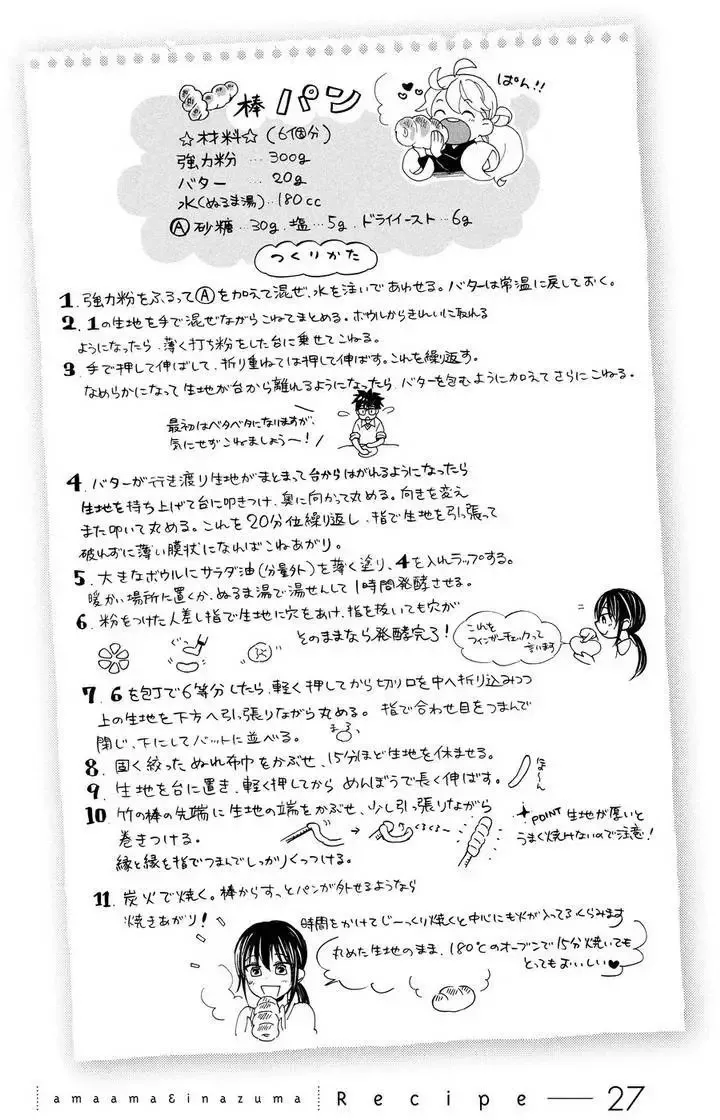 棒パン
ぱん!!
☆材料☆ (6個分)
強力粉 … 300g
バター … 20g
水(ぬるま湯)‥180cc
Ⓐ砂糖…30g.塩…5g.ドライイースト…6g
つくりかた
1.強力粉をふるってⒶを加えて混ぜ、水を注いであわせる。バターは常温に戻しておく。
2.1の生地を手で混ぜながらこねてまとめる。ボウルからきれいに取れる
ようになったら、薄く打ち粉をした台に乗せてこねる。
3.手で押して伸ばして、折り重ねては押して伸ばす。これを繰り返す。
なめらかになって生地が台から離れるようになったら、バターを包むように加えてさらにこねる。
最初はベタベタになりますが、
気にせずこねましょう〜!
4.バターが行き渡り生地がまとまって台からはがれるようになったら
生地を持ち上げて台に叩きつけ、奥に向かって丸める。向きを変え
また叩いて丸める。これを20分位繰り返し、指で生地を引っ張って
破れずに薄い膜状になればこねあがり。
5.大きなボウルにサラダ油(分量外)を薄く塗り、4を入れラップする。
暖かい場所に置くか、ぬるま湯で湯せんして1時間発酵させる。
6.粉をつけた人差し指で生地に穴をあけ、指を抜いても穴が
そのままなら発酵完了!
これを
フィンガーチェックって
言います
7.6を包丁で6等分したら、軽く押してから切り口を中へ折り込みつつ
上の生地を下方へ引っ張りながら丸める。指で合わせ目をつまんで
閉じ、下にしてバットに並べる。
8.固く絞ったぬれ布巾をかぶせ、15分ほど生地を休ませる。
9.生地を台に置き、軽く押してからめんぼうで長く伸ばす。
10.竹の棒の先端に生地の端をかぶせ、少し引っ張りながら
巻きつける。
くるくる〜
縁と縁を指でつまんでしっかりくっつける。
POINT 生地が厚いと
うまく焼けないので注意!
11.炭火で焼く。棒からすっとパンが外せるようなら
焼きあがり!
時間をかけてじーっくり焼くと中心にも火が入ってふくらみます
丸めた生地のまま、180℃のオーブンで15分焼いても
とってもおいしい♥
amaama&inazuma
Recipe — 27